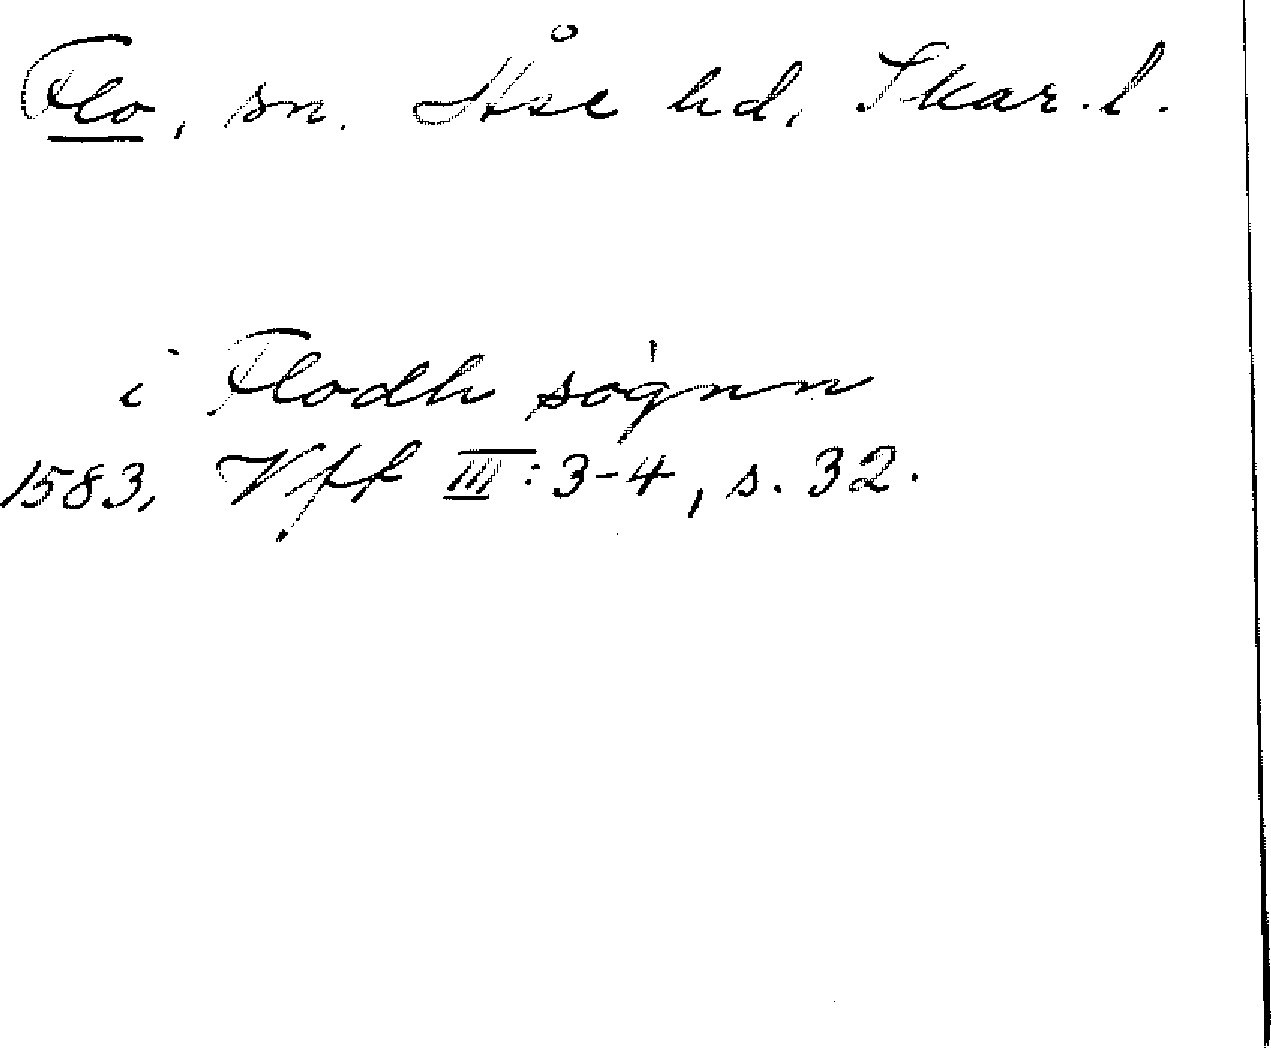 Flo, sn. Åse hd, Skar. l.
i Flodh sognn
1583, Vff III: 3-4, s. 32.